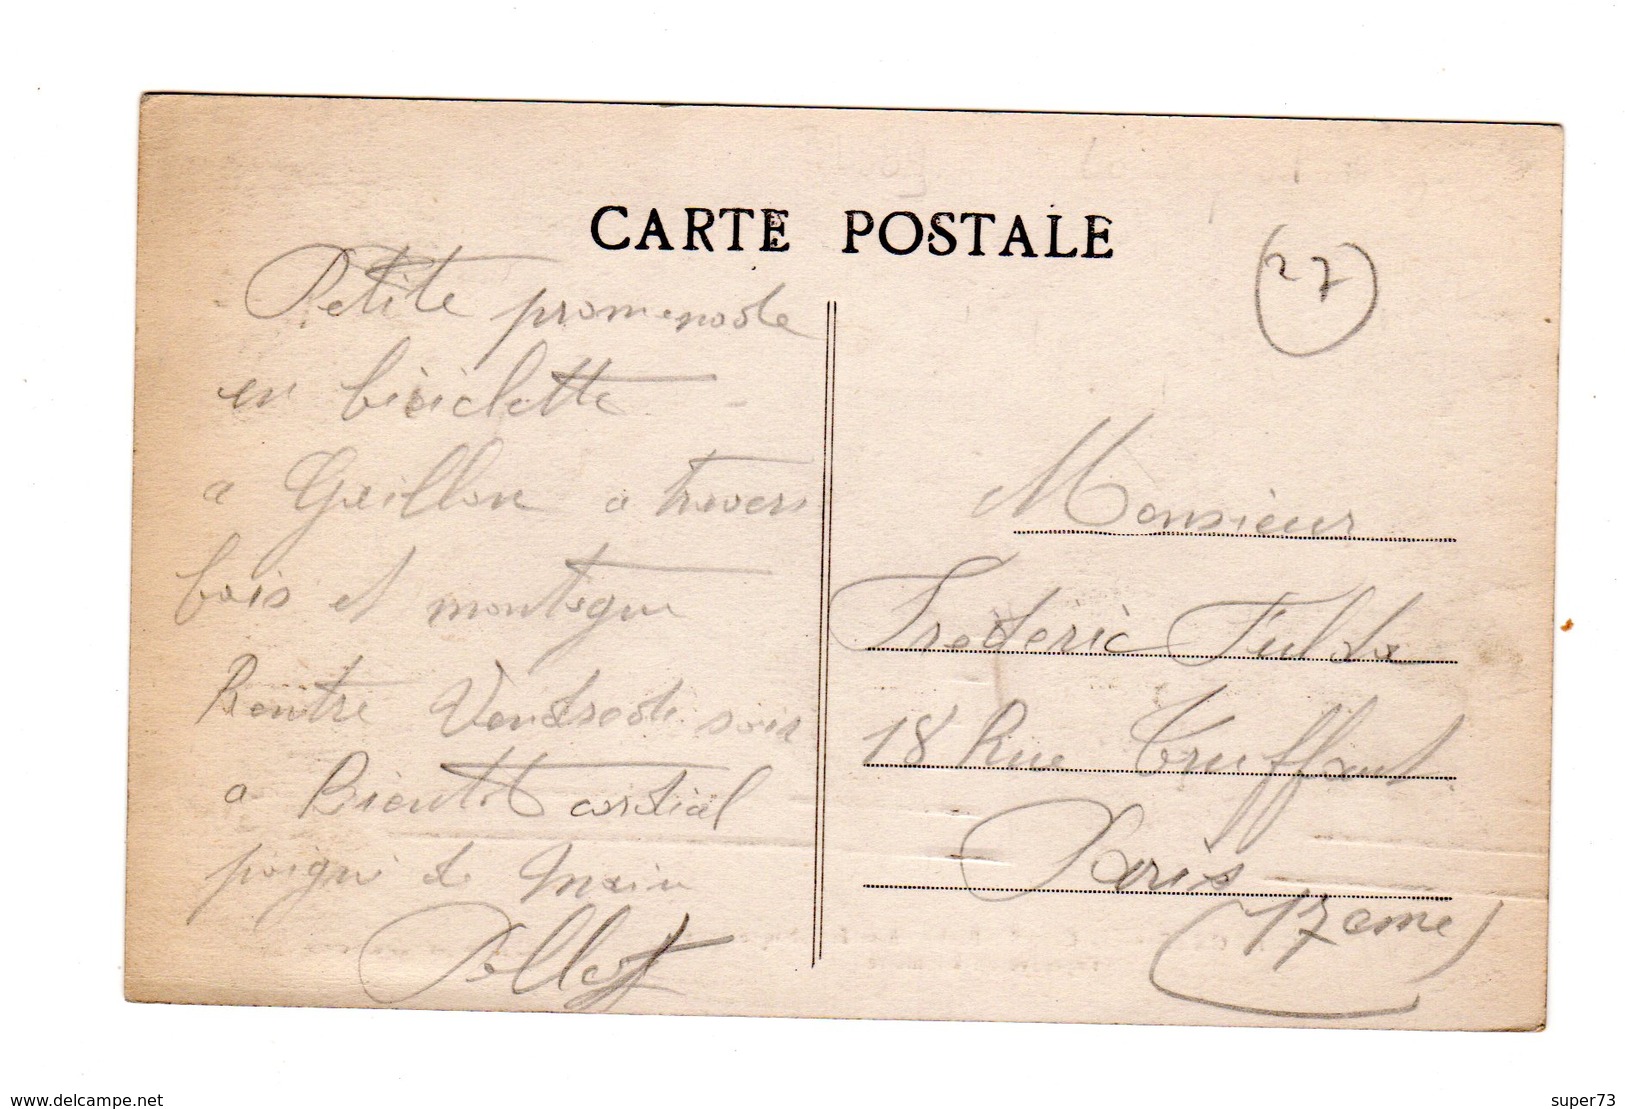 CARTE POSTALE
27
Petite promenade
en biciclette
a Gaillon a travers
bois et montagne
Rentre Vendredi soir
a Bientot cordial
poigné de main
Monsieur
Frederic Fulda
18 Rue Truffaut
Paris
(17eme)
www.delcampe.net
super73